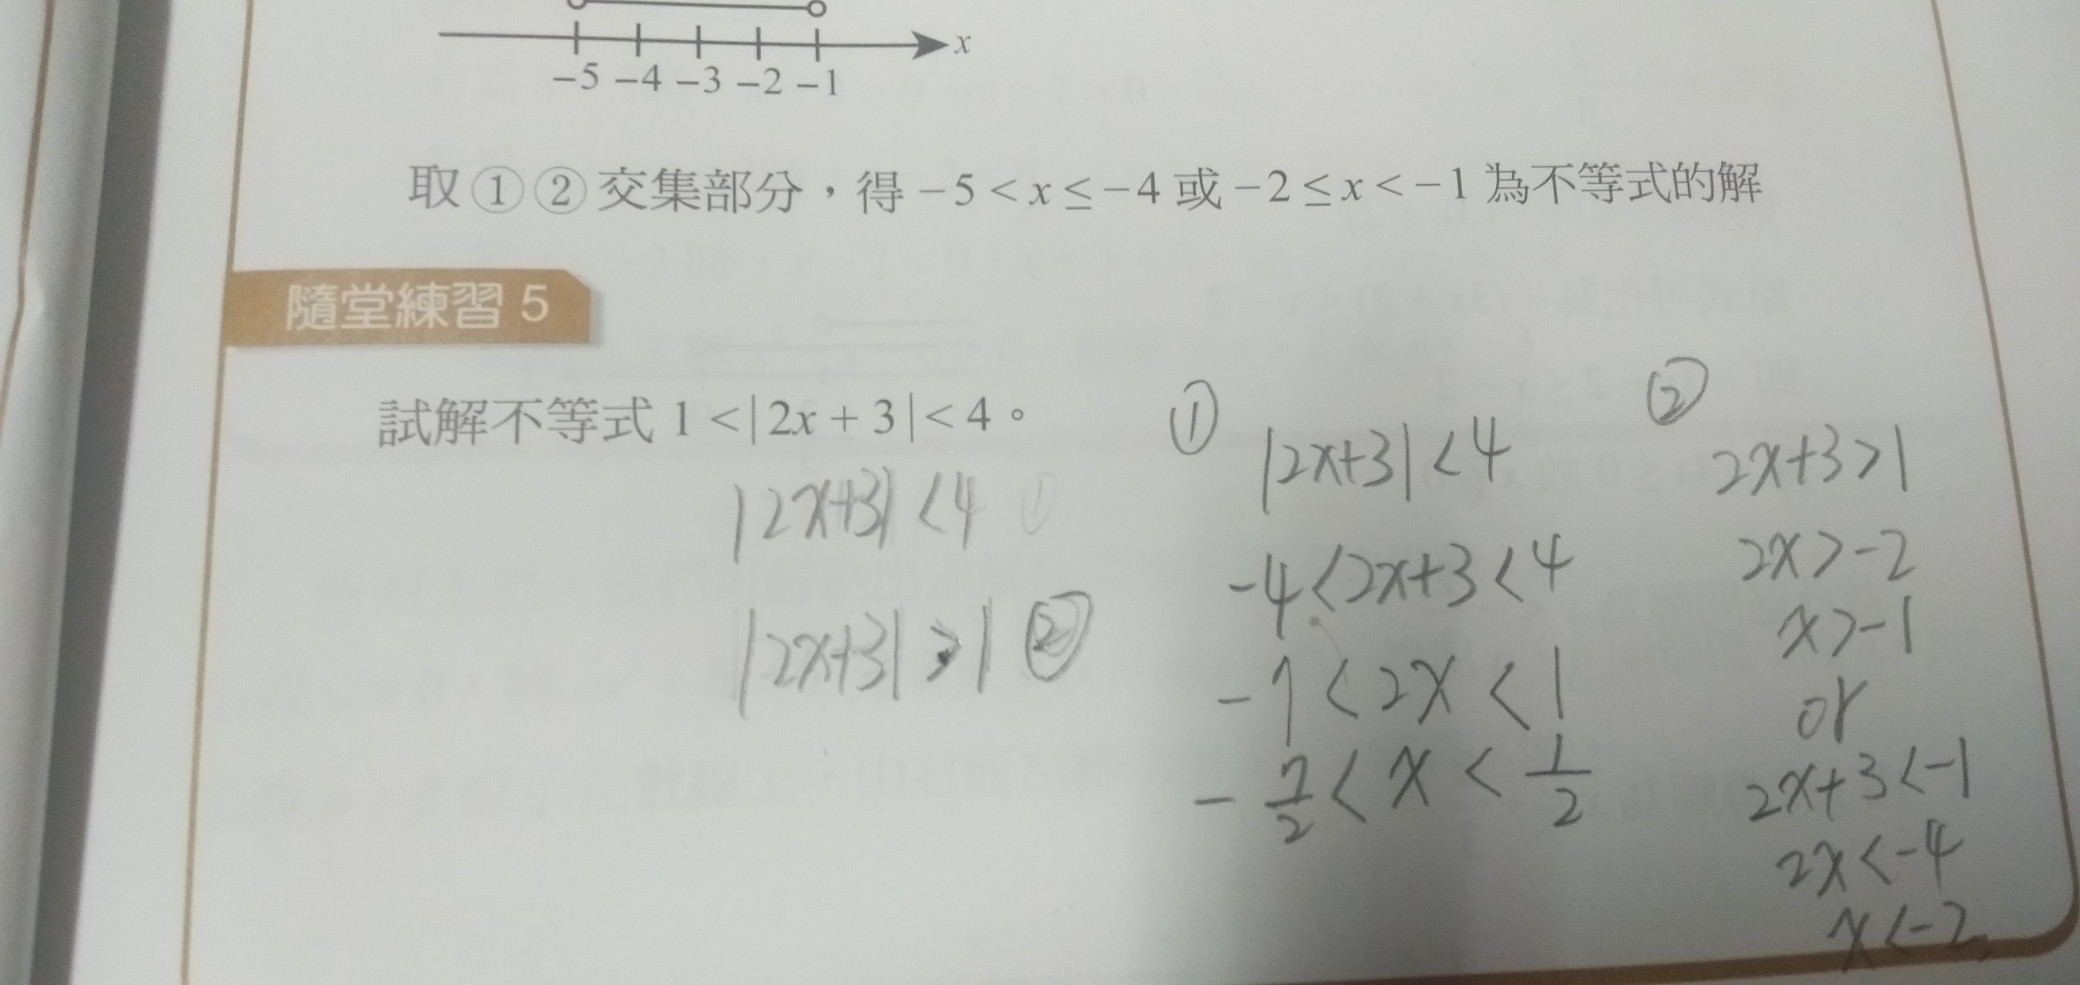 x
−5 −4 −3 −2 −1
取①②交集部分，得 −5 < x ≤ −4 或 −2 ≤ x < −1 為不等式的解
隨堂練習 5
試解不等式 1 < | 2x + 3 | < 4。
|2x+3| < 4 ①
|2x+3| > 1 ②
①
|2x+3| < 4
-4 < 2x+3 < 4
-7 < 2x < 1
-7/2 < x < 1/2
②
2x+3 > 1
2x > -2
x > -1
or
2x+3 < -1
2x < -4
x < -2